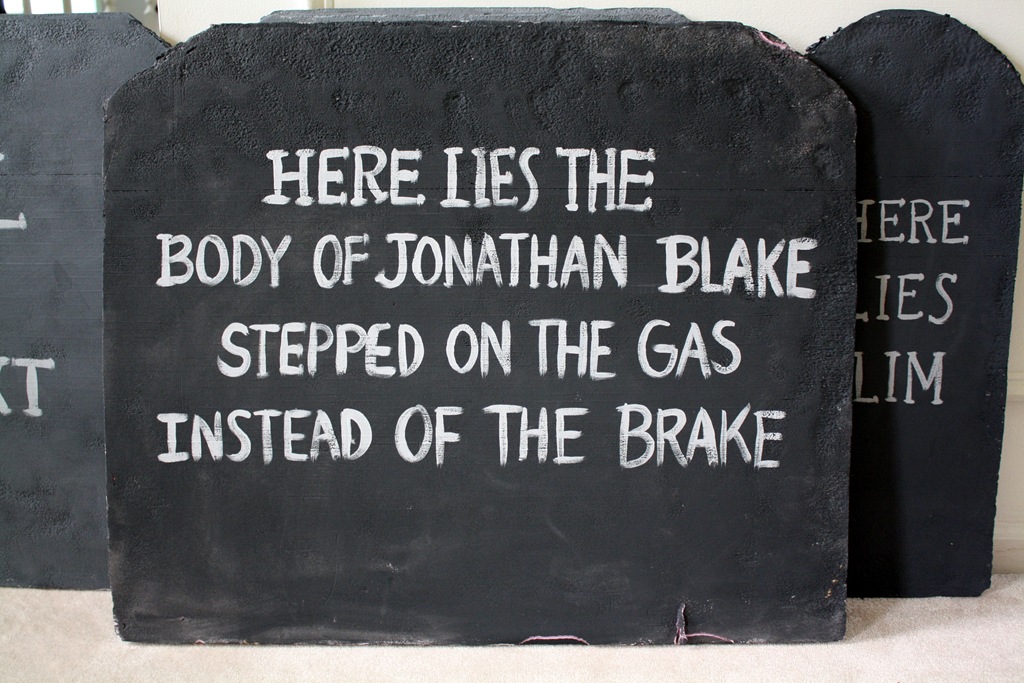 HERE LIES THE
BODY OF JONATHAN BLAKE
STEPPED ON THE GAS
INSTEAD OF THE BRAKE
HERE
LIES
LIM